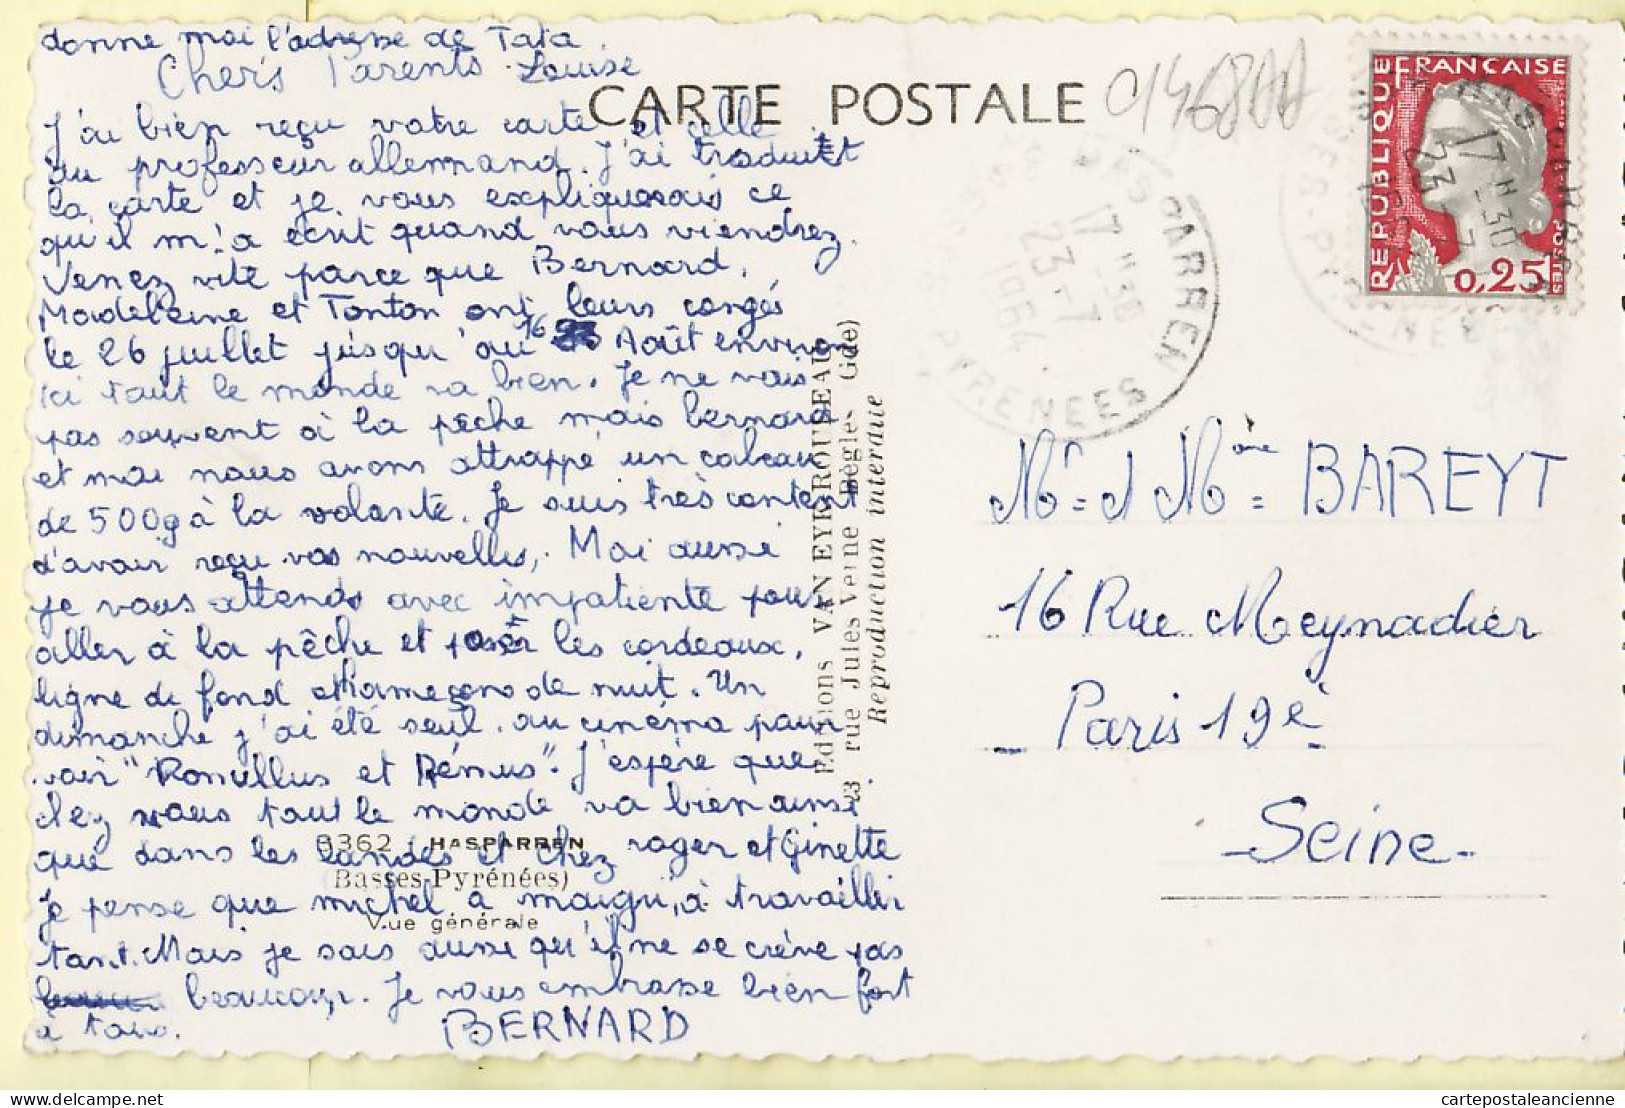 donne moi l'adresse de Tata
Louise
Chers Parents
J'ai bien reçu votre carte et celle
du professeur allemand. J'ai traduit
la carte et je vous expliquerais ce
qu'il m'a écrit quand vous viendrez.
Venez vite parce que Bernard,
Madeleine et Tonton ont leurs congés
le 26 juillet jusqu'au 16 Août environ
Ici tout le monde va bien. Je ne vais
pas souvent à la pêche mais bernard
et moi nous avons attrappé un cabeau
de 500g à la volante. Je suis très content
d'avoir reçu vos nouvelles, Moi aussi
je vous attends avec impatiente pour
aller à la pêche et poser les cordeaux,
ligne de fond et hameçons de nuit. Un
dimanche j'ai été seul au cinéma pour
voir "Romullus et Rémus". J'espère que
chez vous tout le monde va bien ainsi
que dans les landes et chez roger et Ginette
Je pense que michel a maigri, à travailler
tant. Mais je sais aussi qu'il ne se crève pas
beaucoup. Je vous embrasse bien fort
à tous.
BERNARD
8362 HASPARREN
(Basses-Pyrénées)
Vue générale
Editions VAN EYK ROUSSEAU
23 rue Jules Verne Bègles Gde)
Reproduction interdite
CARTE POSTALE
91468AA
HASPARREN
17H30
23-7
1964
PYRENEES
REPUBLIQUE FRANÇAISE
0,25
POSTES
17H30
23-7
Mr et Mme BAREYT
16 Rue Meynadier
- Paris 19è -
- Seine -
cartepostaleancienne.com
cartepostaleancienne